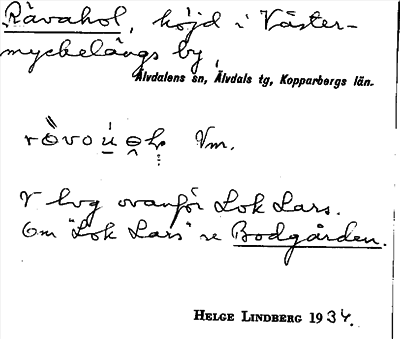 Råvahol, höjd i Väster-
myckelängs by,
Älvdalens sn, Älvdals tg, Kopparbergs län.
Vm.
V hvg ovanför Lok Lars.
Om "Lok Lars" se Bodgården.
HELGE LINDBERG 1934.